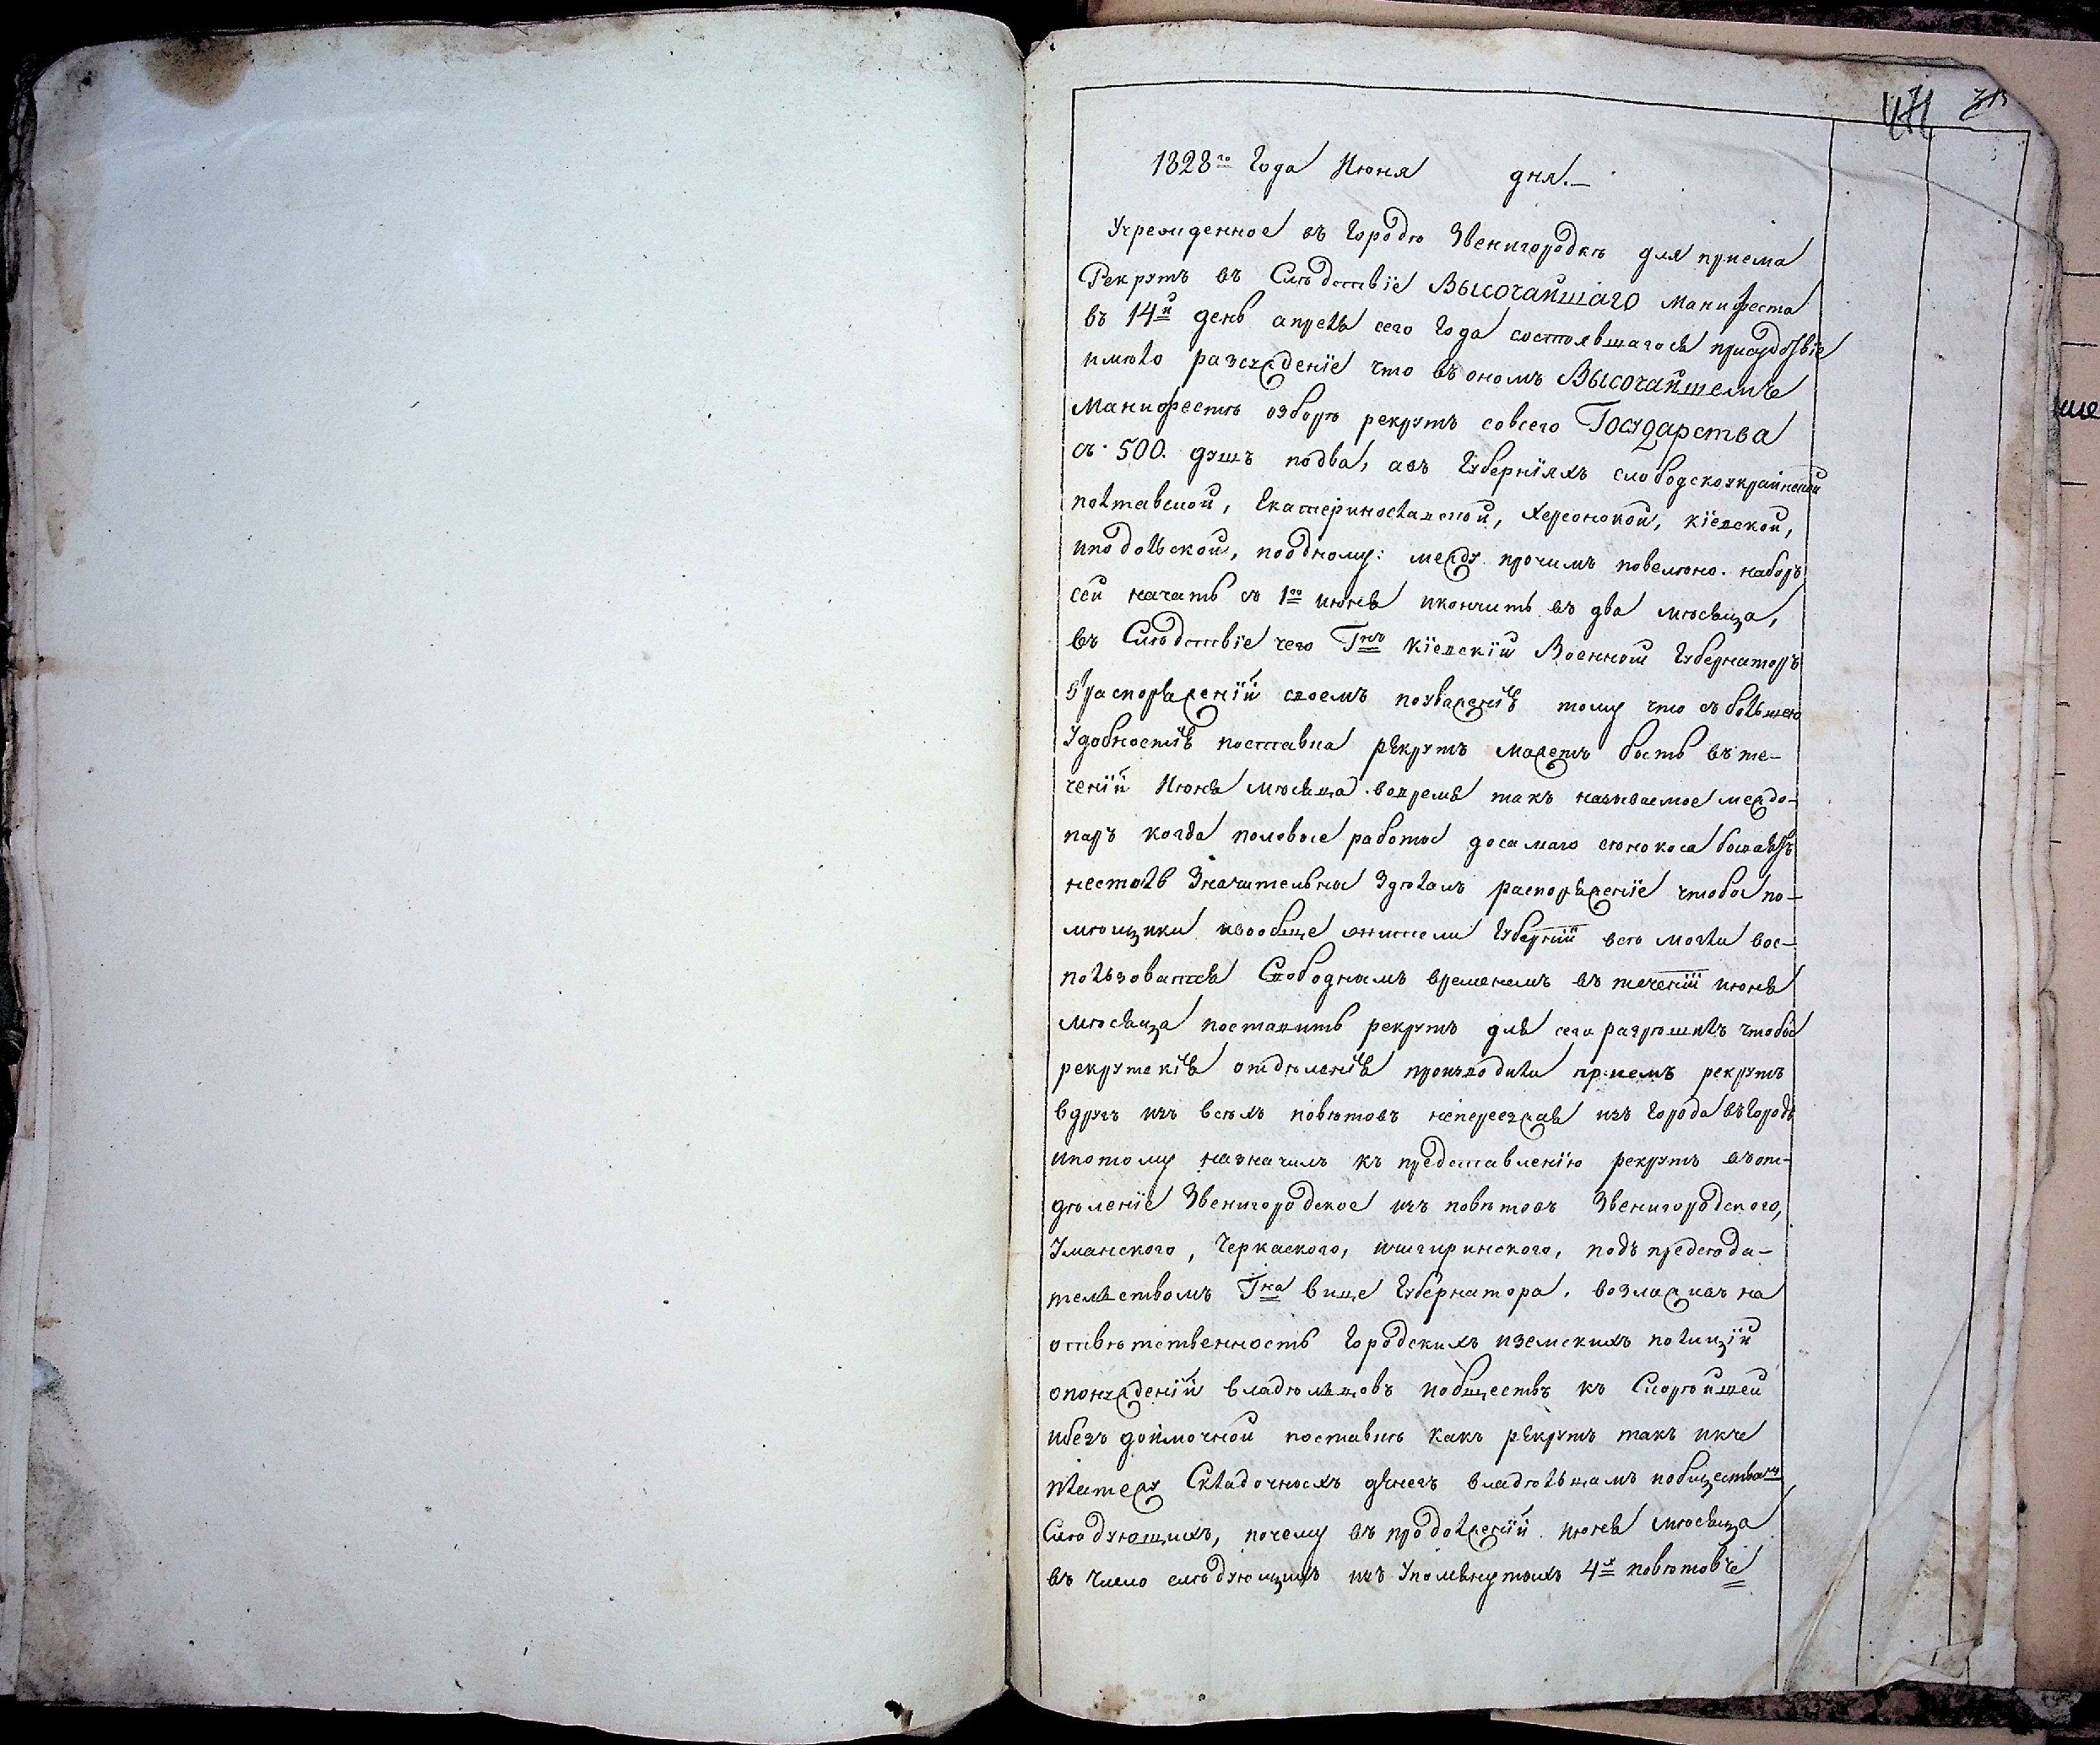 1828го Года Июня дня.—
Учрежденное въ Городѣ Звенигородкѣ для приема
Рекрутъ въ Слѣдствіе Высочайшаго Манифеста
въ 14й день апреля сего Года состоявшагося присудствіе
имѣло разсужденіе что въ ономъ Высочайшемъ
Манифестѣ о зборѣ рекрутъ совсего Государства
съ 500. душъ подва, авъ Губерніяхъ слободскоукраинской
полтавской, Екатериославской, Херсонской, кіевской,
иподольской, поодному: между прочимъ повелѣно. наборъ
сей начать съ 1го июня икончить въ два мѣсяца,
въ Слѣдствіе чего Гнъ кіевскій Военной Губернаторъ
в распоряженіи своемъ поуваженію тому что съ большею
Удобностію поставка рекрутъ можетъ быть въ те-
ченіи Июня мѣсяца вовремя такъ называемое междо-
паръ когда полевые работы досамаго сѣнокоса бываютъ
нестоль Значительны Здѣлалъ распоряженіе чтобы по-
мѣщики ивообще жители Губерніи всѣ могли вос-
пользоватся Свободнымъ временемъ въ теченіи июня
мѣсяца поставить рекрутъ для сего разрѣшилъ чтобы
рекрутскія отдѣленія производили приемъ рекрутъ
вдругъ изъ всѣхъ повѣтовъ непереезжая изъ города въ городъ
ипотому назначилъ къ представленію рекрутъ въ от-
дѣленіе Звенигородское изъ повѣтовъ Звенигородского,
Уманского, Черкаского, ичигиринского, подъ предсѣда-
тельствомъ Гна вице Губернатора, возложивъ на
отвѣтственность Городскихъ иземскихъ полицій
опонужденіи владѣльцовъ иобществъ къ Скорѣйшей
ибезъ доимочной поставкѣ какъ рекрутъ такъ икъ
платежу Складочныхъ денегъ владѣльцамъ иобществамъ
Слѣдующихъ, почему въ продолженіи июня мѣсяца
въ число слѣдующихъ изъ Упомянутыхъ 4х повѣтовъ